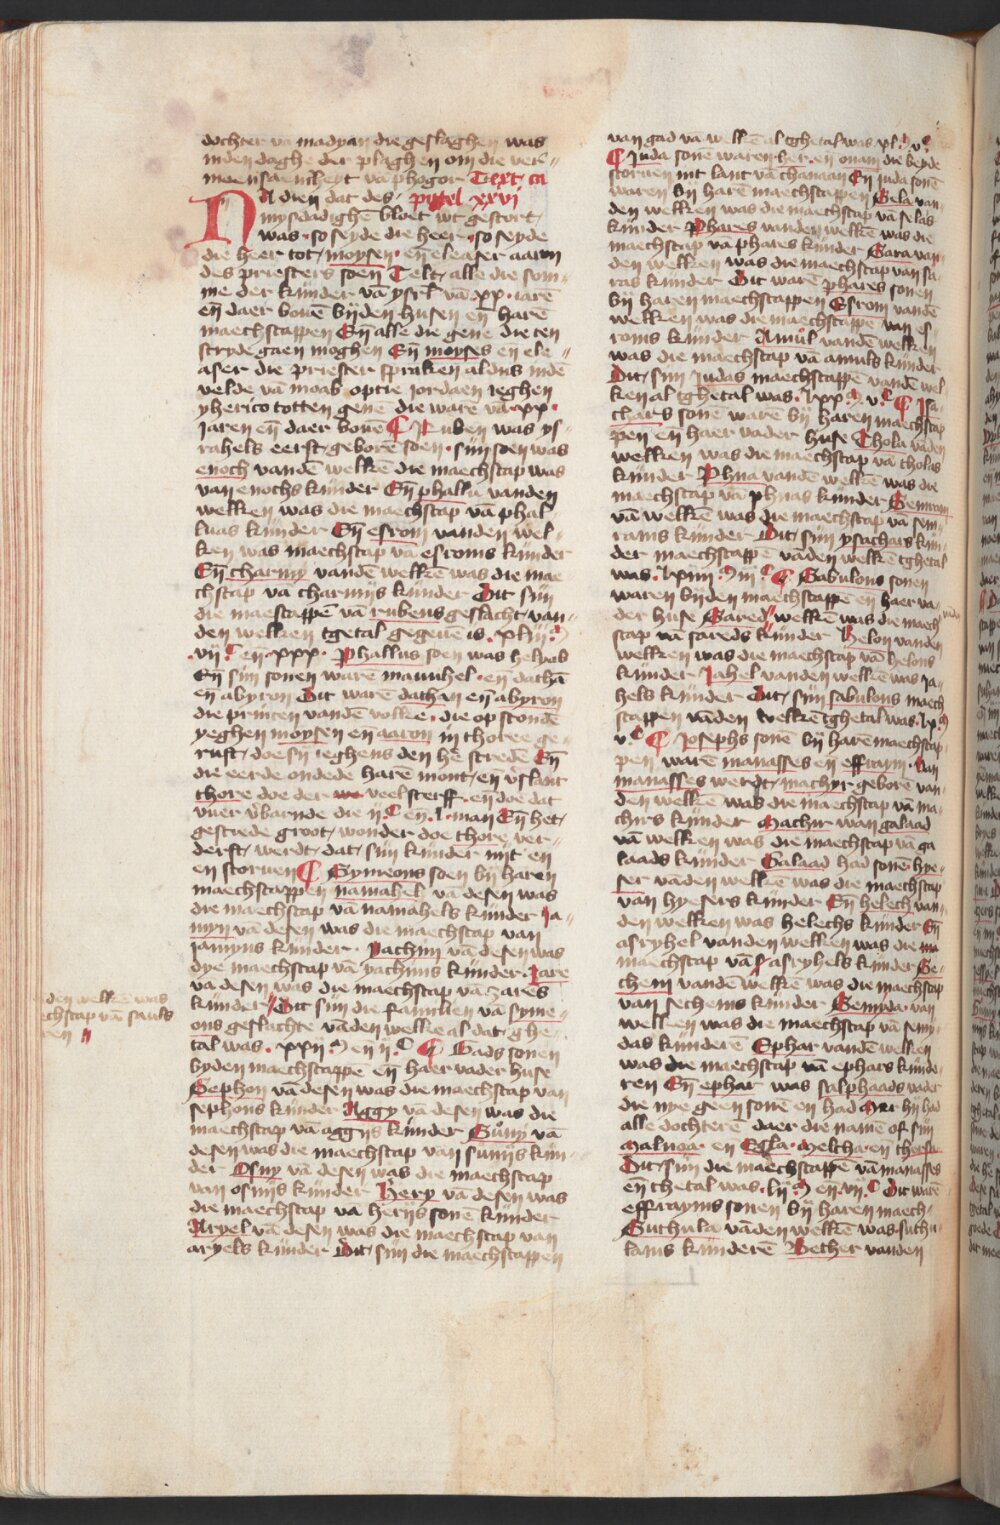 dochter vā madyan die geslaghen was
inden daghe der plaghen om die ver-
meensaemheyt vā phogor Text ca
pittel xxvi
NA dien dat des
mysdadighē bloet wt gestort
was · so seyde die heer · so seyde
die heer tot moysen · eñ eleaser aaron
des priesters soen Telt alle die som-
me der kīnder vā ysrl vā xx · iarē
eñ daer bouē bijden husen eñ harē
maechstappen Eñ alle die gene die ten
stryde gaen moghen Eñ moyses eñ ele-
aser die priester spraken aldus indē
velde vā moab op tie jordaen ieghen
yherico totten genē die warē vā xx ·
jaren eñ daer bouē ¶ Ruben was ys-
rahels eerst geborē soen · sijn soen was
enoch vandē welkē die maechstap was
van enochs kīnder Eñ phallu vanden
welken was die maechstap vā phal-
luus kīnder Eñ esrom vanden wel-
ken was maechstap vā esroms kīnder
Eñ charmy vandē welkē was die mae
chstap vā charmijs kīnder Dit sijn
die maestappē vā rubens geslacht van-
den welken tgetal gegeuē is · xliij · M
· vij · C eñ xxx · Phallus soen was helyab
Eñ sijn sonen warē mauuhel · eñ dathā
eñ abyron Dit warē dathan eñ abyron
die princen vandē volke · die opstondē
yeghen moysen eñ aaron in choree ge-
ruft doe sij ieghens den hē stredē Eñ
die eerde ondede harē mont · eñ v̄slant
chore doe der veel sterff · eñ doe dat
vuer v̄barnde die ij · C eñ · l · man Eñ het
gestiede groot wonder doe chore ver-
derft werdt dat sijn kīnder niit en
en storuen ¶ Symeons soen bij haren
maechstappen namahel vā desen was
die maechstap vā namahels kīnder Ja-
myn vā desen was die maechstap van
jamyns kīnder · Jachim vā desen was
dye maechstap vā yachims kīnder · Jare
vā desen was die maechstap vā zares
kīnder // Dit sijn die familien vā syme-
ons geslachte vāden welkē al dat ghe-
tal was · xxij · M eñ ij · C ¶ Gads sonen
byden maechstappē eñ haer vader huse
Sephon vā desen was die maechstap van
sephons kīnder Aggy vā desen was die
maechstap vā aggijs kīnder Suny vā
desen was die maechstap van sunijs kīn-
der Osny vā desen was die maechstap
van osnijs kīnder Hery vā desen was
die maechstap vā herijs sonē kīnder
Aryel vā desen was die maechstap van
aryels kīnder Dit sijn die maechstappen
den welkē was
echstap vā sauls
ren //
van gad vā welkē al tghetal was xl · M v · C
¶ Juda sonē waren her · eñ onam die beyde
storuen int lant vā chanaan Eñ juda sonē
waren bij harē maechstappen Sela van-
den welken was die maechstap vā selas
kīnder Phares vanden welkē was die
maechstap vā phares kīnder Sara van-
den welken was die maechstap van sa-
ras kīnder Dit warē phares sonen
bij haren maechstappen Esrom vandē
welken was die maechstappē van es-
roms kīnder Amul vandē welken
was die maechstap vā amuls kīnder
Dit sijn Judas maechstappē vandē wel-
ken al tghetal was · lxx · M v · C ¶ Ysa-
chars sonē warē bij haren maechstap
pen eñ haer vader huse Thola vādē
welken was die maechstap vā tholas
kīnder Phua vandē welkē was die
maechstap vā phuas kīnder Semron
vā welkē was die maechstap vā sem-
rams kīnder Dit sijn ysachars kīn-
der maechstappē vāden welkē tghetal
was · lxiiij · M iij · C ¶ Sabulons sonen
waren bijden maechstappē eñ haer va-
der huse Sared // welkē was die maech
stap vā sareds kīnder Helon vanden
welken was die maechstap vā helons
kīnder Jahel vanden welken was ja-
hels kīnder Dit sijn sabulons maech
stappen vāden welkē tghetal was · lx · M
v · C ¶ Josephs sonē bij harē maechstap
pen warē manasses eñ effraym · Van
manasses werdt machyr geborē van-
den welkē was die maechstap vā ma-
chirs kīnder Machir wan galaad
vā welken was die maechstap vā ga
laads kīnder Galaad had sonē hye-
ser vāden welkē was die maechstap
van hyesers kīnder Eñ helech van-
den welken was helechs kīnder Eñ
asryhel vanden welken was die
maechstap vā asryhels kīnder Se-
chem vandē welkē was die maechstap
van sechems kīnder Semyda van
welken was die maechstap vā semy-
das kīnderē Ephar vandē welken
was die maechstap vā ephars kīnde-
ren Eñ ephar was salphaads vader
die nye geen sonē en had mer hij had
alle dochterē daer die namē of sijn
Malnoa · eñ Egla · Melcha · eñ thersa
Dit sijn die maechstappē vā manasses
eñ thetal was · lij · M eñ · vij · C Dit warē
effrayms sonen bij haren maech-
Suthula vāden welkē was suthu-
lams kīnderē Bether vanden